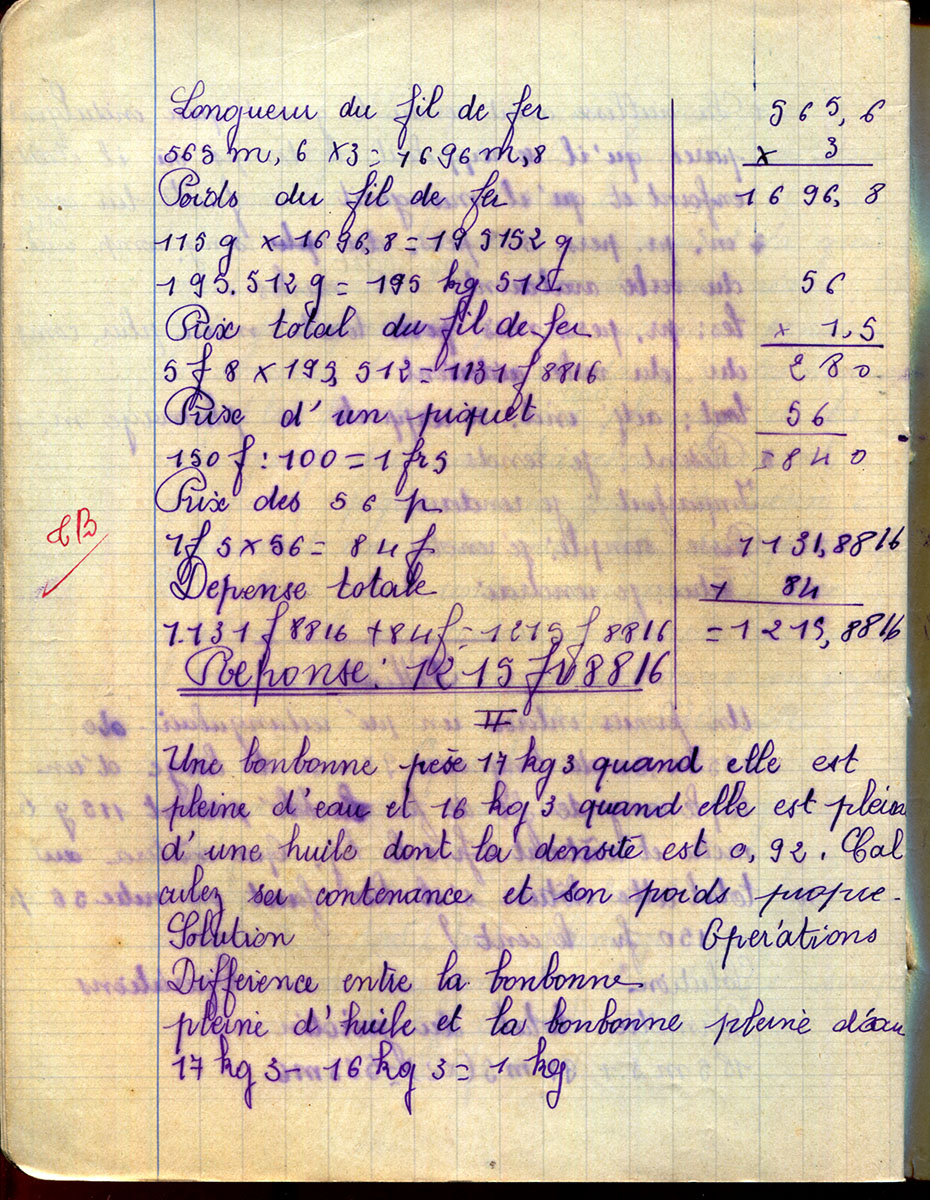 Longueur du fil de fer
565 m, 6 x 3 = 1696 m, 8
Poids du fil de fer
115 g x 1696,8 = 195152 g
195.512 g = 195 kg 512
Prix total du fil de fer
5 f 8 x 195, 512 = 1131 f 8816
Prix d'un piquet
150 f : 100 = 1 fr 5
Prix des 56 p
1 f 5 x 56 = 84 f
Dépense totale
1.131 f 8816 + 84 f = 1215 f 8816
Réponse : 1215 f 8816
565,6
x 3
1696,8
56
x 1,5
280
56
= 840
1131,8816
+ 84
= 1215,8816
TB
II
Une bonbonne pèse 17 kg 3 quand elle est
pleine d'eau et 16 kg 3 quand elle est pleine
d'une huile dont la densité est 0,92. Cal
culez sa contenance et son poids propre.
Solution Opérations
Différence entre la bonbonne
pleine d'huile et la bonbonne pleine d'eau
17 kg 3 - 16 kg 3 = 1 kg